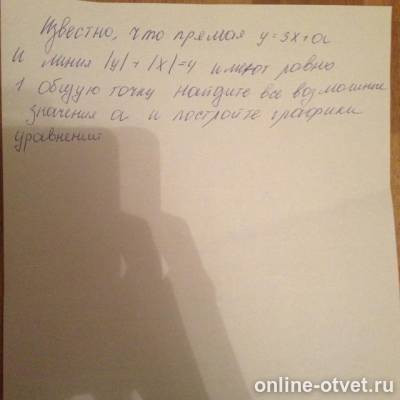 Известно, что прямая y=3x+a
и линия |y|+|x|=4 имеют ровно
1 общую точку найдите все возможные
значения a и постройте графики
уравнений
online-otvet.ru